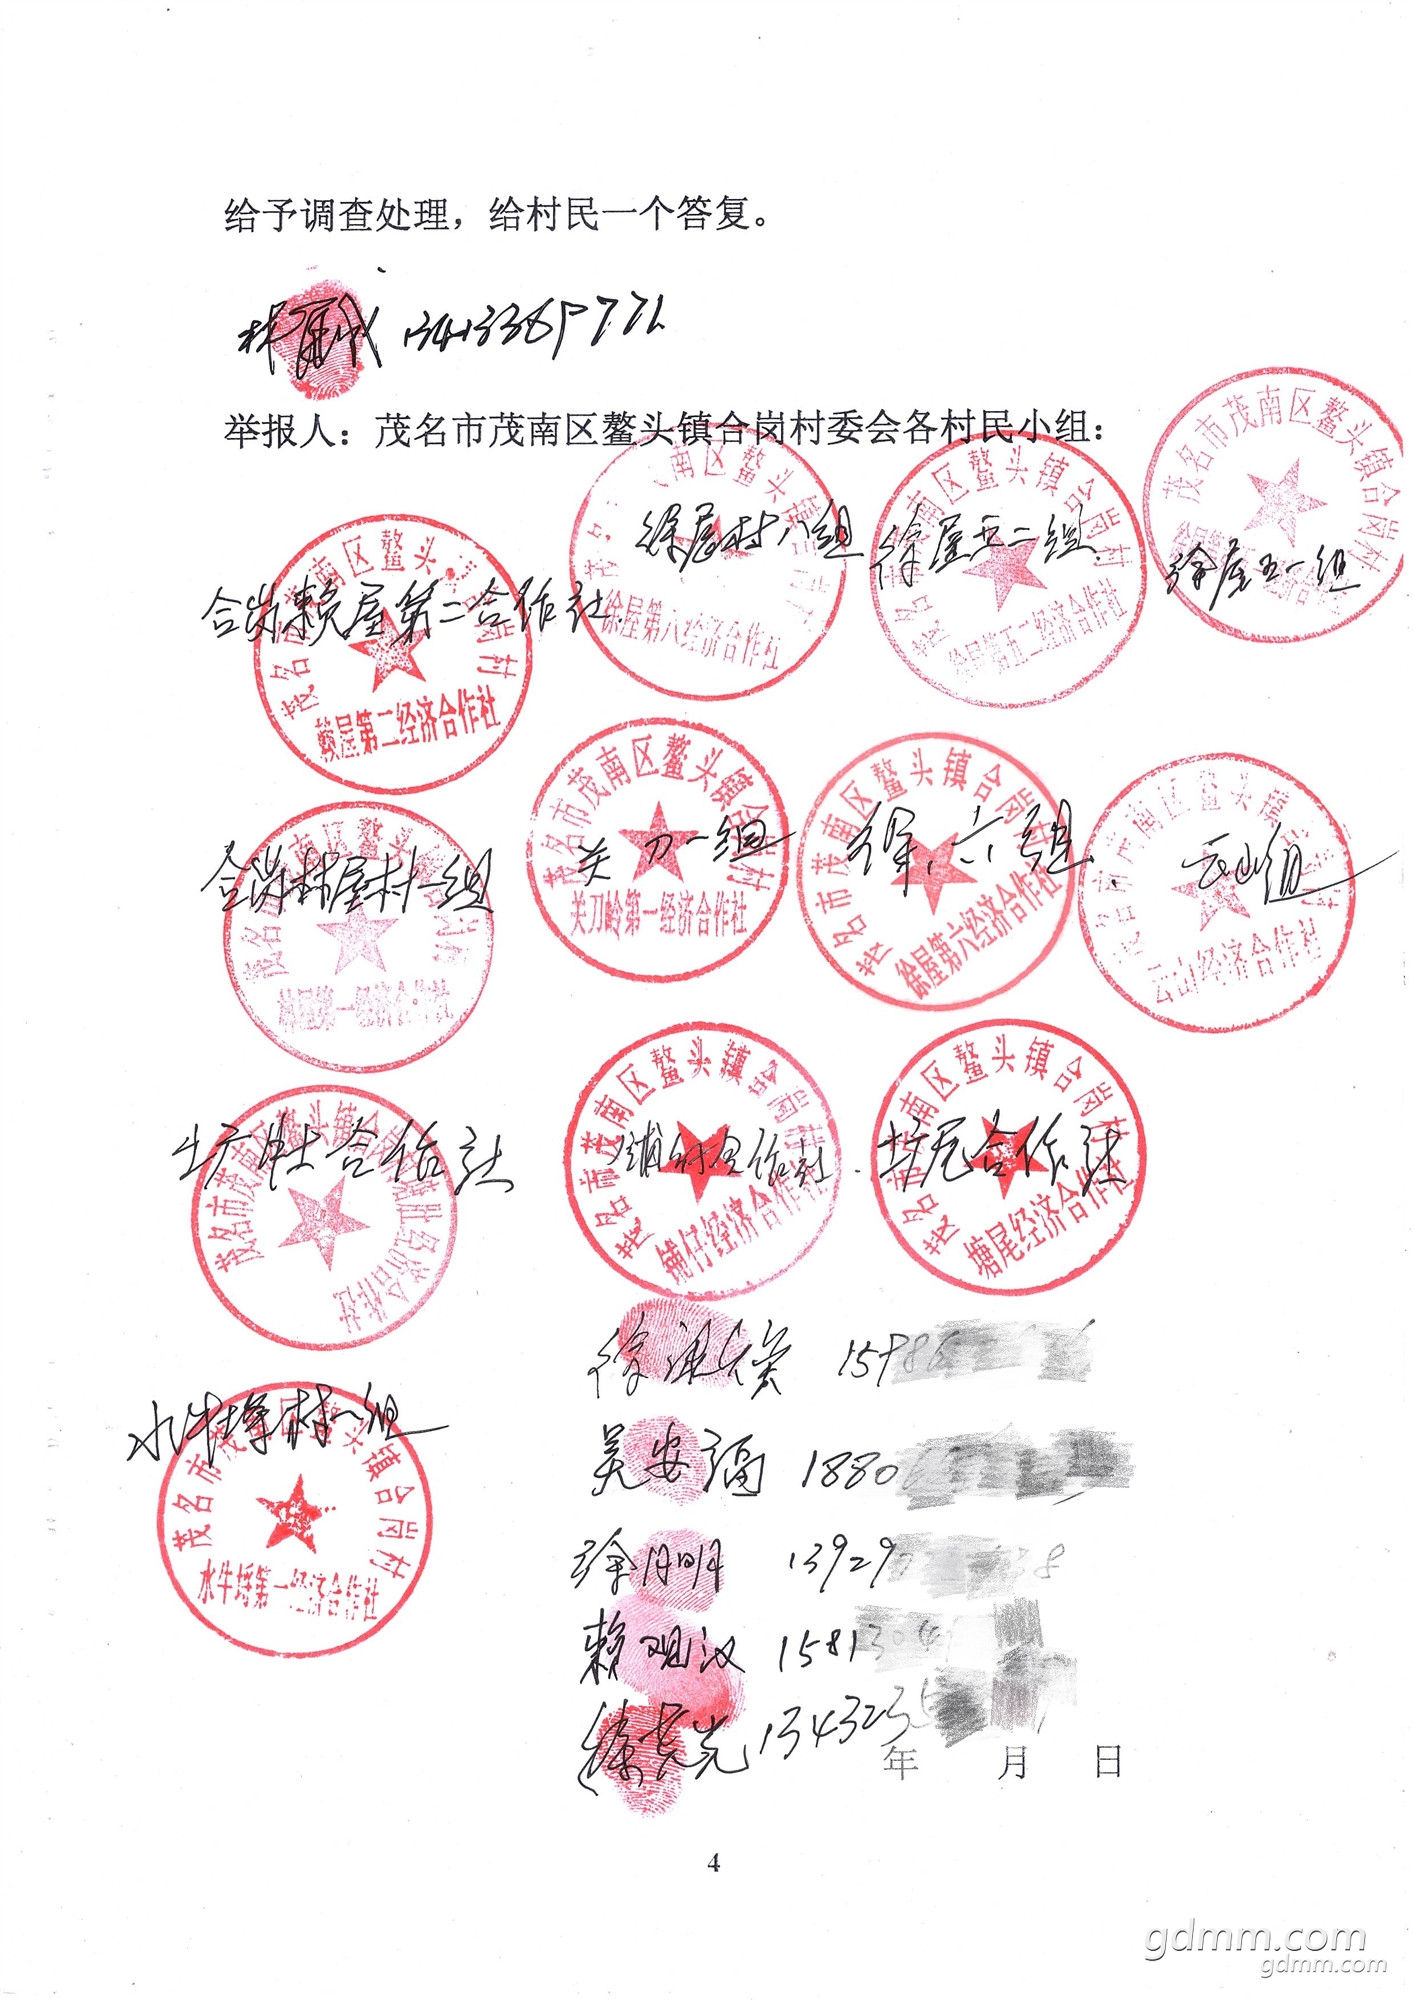 给予调查处理，给村民一个答复。
举报人：茂名市茂南区鳌头镇合岗村委会各村民小组：
茂名市茂南区鳌头镇合岗村
徐屋村八组
徐屋第八经济合作社
徐屋五二组
茂名市茂南区鳌头镇合岗村
徐屋第五二经济合作社
茂名市茂南区鳌头镇合岗村
徐屋五一组
合岗赖屋第二合作社
茂名市茂南区鳌头镇合岗村
赖屋第二经济合作社
合岗林屋村一组
林屋第一经济合作社
茂名市茂南区鳌头镇合岗村
关刀一组
关刀岭第一经济合作社
茂名市茂南区鳌头镇合岗村
徐六组
徐屋第六经济合作社
茂名市茂南区鳌头镇合岗村
云山组
云山经济合作社
合作社
茂名市茂南区鳌头镇合岗村
经济合作社
茂名市茂南区鳌头镇合岗村
铺仔合作社
铺仔经济合作社
茂名市茂南区鳌头镇合岗村
塘尾合作社
塘尾经济合作社
水牛埒村一组
茂名市茂南区鳌头镇合岗村
水牛埒第一经济合作社
15986
吴安 1880
徐月明 13929
赖观汉 1581304
徐 光 1343235
年 月 日
4
gdmm.com
gdmm.com